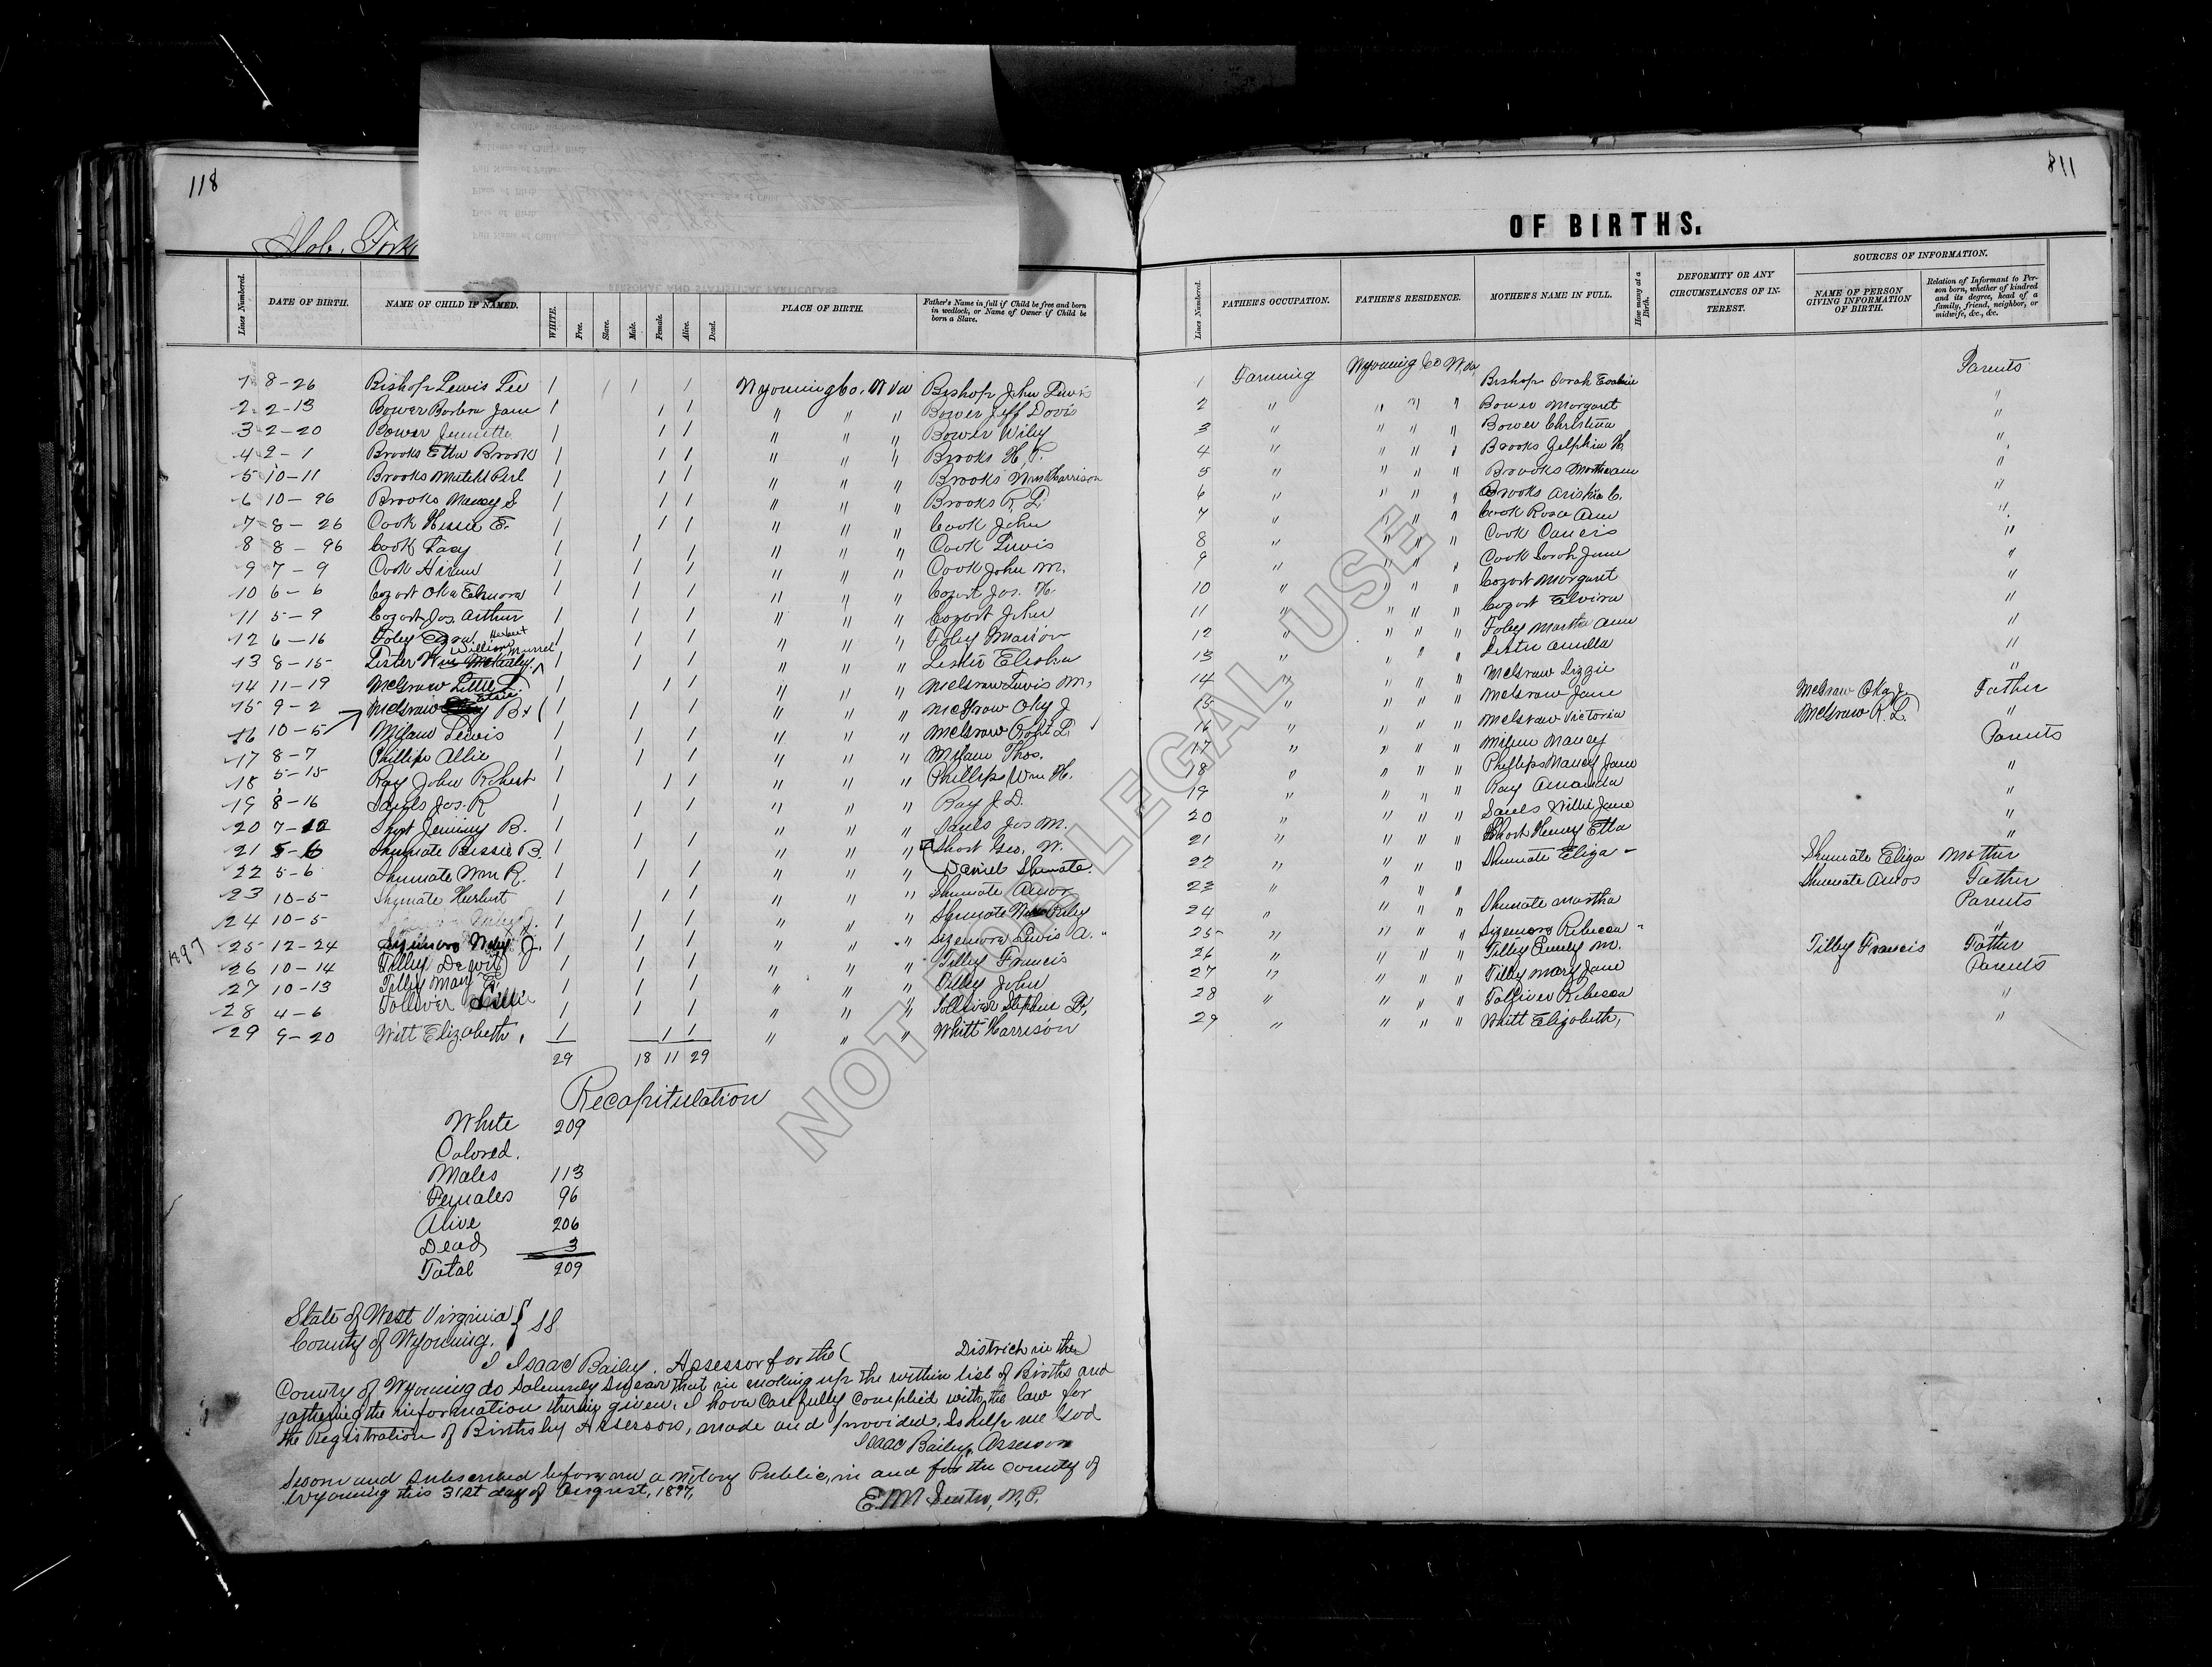 118
811
Slab Fork
OF BIRTHS.
Lines Numbered. DATE OF BIRTH. NAME OF CHILD IF NAMED. WHITE. Free. Slave. Male. Female. Alive. Dead. PLACE OF BIRTH. Father's Name in full if Child be free and born in wedlock, or Name of Owner if Child be born a Slave.
1 8-26 Bishop Lewis Lee 1 1 1 Wyoming Co. W Va Bishop John Lewis
2 2-13 Bower Barbra Jane 1 1 1 " " " Bower Jeff Davis
3 2-20 Bower Jennette 1 1 1 " " " Bower Wiley
4 2-1 Brooks Etta Brook 1 1 1 " " " Brooks H. P.
5 10-11 Brooks 1 1 1 " " " Brooks Wm Harrison
6 10-96 Brooks Mancy S 1 1 1 " " " Brooks R. L
7 8-26 Cook Hessie E. 1 1 1 " " " Cook John
8 8-96 Cook 1 1 1 " " " Cook Lewis
9 7-9 Cook Hiram 1 1 1 " " " Cook John M.
10 6-6 Cozort Oka Elmora 1 1 1 " " " Cozort Jos. H.
11 5-9 Cozort Jos. Arthur 1 1 1 " " " Cozort John
12 6-16 Foley Herbert 1 1 1 " " " Foley Marion
13 8-15 Lester William Murrel 1 1 1 " " " Lester Elisha
14 11-19 McGraw Lettie 1 1 1 " " " McGraw Lewis M.
15 9-2 McGraw 1 1 1 " " " McGraw Oky J
16 10-5 Milam Lewis 1 1 1 " " " McGraw Robt L
17 8-7 Phillips Allie 1 1 1 " " " Milam Thos.
18 5-15 Ray John Robert 1 1 1 " " " Phillips Wm H.
19 8-16 Sauls Jos. R 1 1 1 " " " Ray J. D.
20 7-12 Short Jenny B. 1 " " " Sauls Jos M.
21 5-6 Shumate Bessie B. 1 1 1 " " " Short Geo. W.
22 5-6 Shumate Wm R. 1 1 1 " " " Daniel Shumate
23 10-5 Shumate Herbert 1 1 1 " " " Shumate Amos
24 10-5 1 1 1 " " " Shumate
1897
25 12-24 Sizemore J. 1 1 1 " " " Sizemore Lewis A.
26 10-14 Tilley Dewit 1 1 1 " " " Tilley Francis
27 10-13 Tilley Mary E. 1 1 1 " " " Tilley John
28 4-6 Toliver Lillie 1 1 1 " " " Tolliver Stephen D.
29 9-20 Witt Elizabeth 1 1 1 " " " Whitt Harrison
29 18 11 29
Recapitulation
White 209
Colored.
Males 113
Females 96
Alive 206
Dead 3
Total 209
State of West Virginia } SS
County of Wyoming.
I Isaac Bailey. Assessor for the ( District in the
County of Wyoming do solemnly swear that in making up the within list of Births and
gathering the information therein given, I have carefully complied with the law for
the Registration of Births by Assessors, made and provided. So help me God
Isaac Bailey, Assessor
Sworn and subscribed before me a notary Public, in and for the County of
Wyoming this 31st day of August, 1897,
E. M. Senter, N. P.
Lines Numbered. FATHER'S OCCUPATION. FATHER'S RESIDENCE. MOTHER'S NAME IN FULL. How many at a Birth. DEFORMITY OR ANY CIRCUMSTANCES OF INTEREST. SOURCES OF INFORMATION. NAME OF PERSON GIVING INFORMATION OF BIRTH. Relation of Informant to Person born, whether of kindred and its degree, head of a family, friend, neighbor, or midwife, &c., &c.
1 Farming Wyoming Co W. Va Bishop Sarah Evaline Parents
2 " " " " Bower Margaret "
3 " " " " Bower Christina "
4 " " " " Brooks Zelphia H. "
5 " " " " Brooks Martha ann "
6 " " " " Brooks C. "
7 " " " " Cook Rosa Ann "
8 " " " " Cook "
9 " " " " Cook Sarah Jane "
10 " " " " Cozort Margaret "
11 " " " " Cozort Elvira "
12 " " " " Foley Martha Ann "
13 " " " " Lester "
14 " " " " McGraw Lizzie "
15 " " " " McGraw Jane McGraw Oky J Father
16 " " " " McGraw Victoria McGraw R. L. "
17 " " " " Milam Nancy Parents
18 " " " " Phillips Nancy Jane "
19 " " " " Ray Amanda "
20 " " " " Sauls Willie Jane "
21 " " " " Short Henry Etta "
22 " " " " Shumate Eliza Shumate Eliza Mother
23 " " " " Shumate Amos Father
24 " " " " Shumate Martha Parents
25 " " " " Sizemore Rebecca "
26 " " " " Tilley Emily M. Tilley Francis Father
27 " " " " Tilley Mary Jane Parents
28 " " " " Toliver Rebecca "
29 " " " " Whitt Elizabeth, "
NOT FOR LEGAL USE